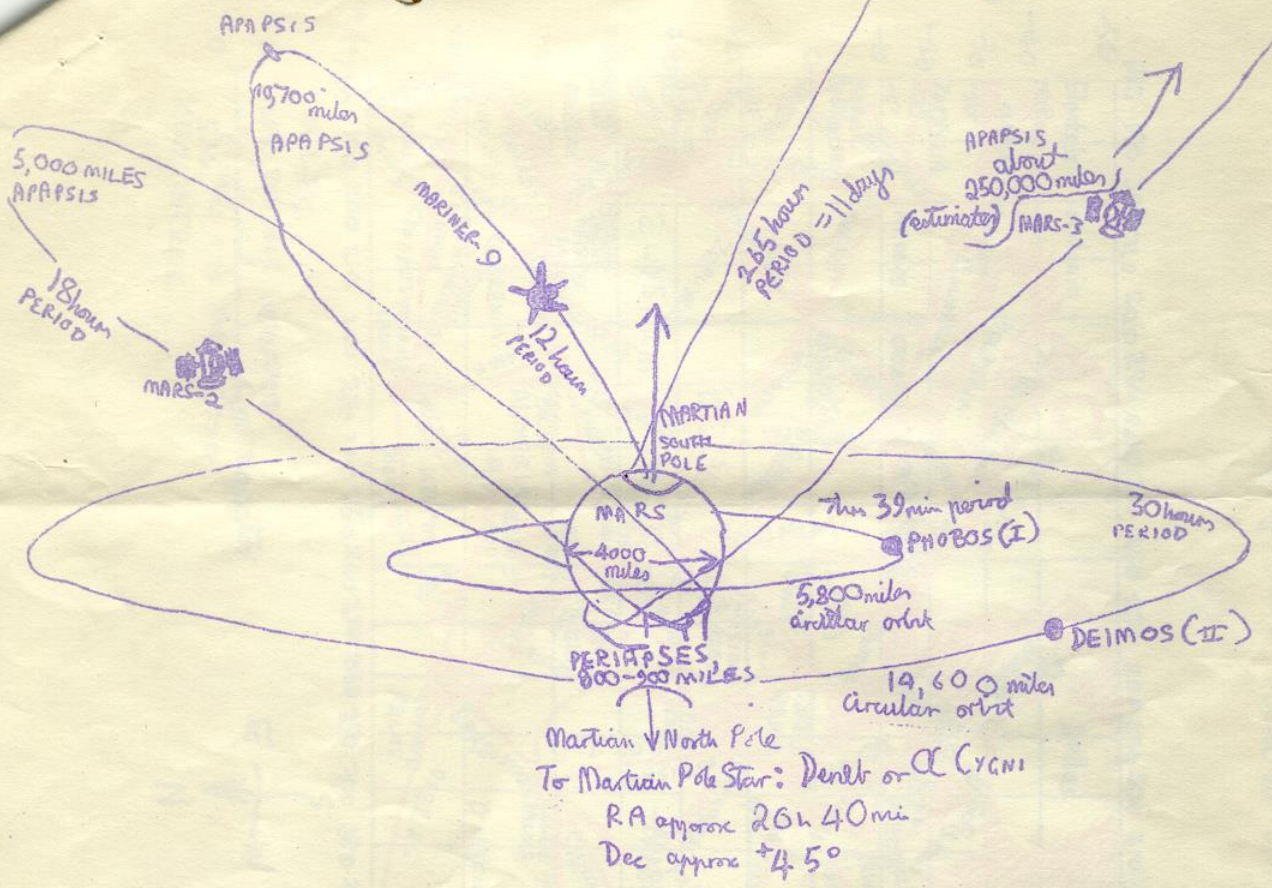 APAPSIS
10,700 miles
APAPSIS
5,000 MILES
APAPSIS
18 hours
PERIOD
MARS-2
MARINER-9
12 hours
PERIOD
265 hours
PERIOD = 11 days
APAPSIS
about
250,000 miles
(estimates)
MARS-3
MARTIAN
SOUTH
POLE
MARS
4000
miles
7hrs 39min period
PHOBOS (I)
5,800 miles
circular orbit
30 hours
PERIOD
DEIMOS (II)
14,600 miles
circular orbit
PERIAPSES,
800-900 MILES
Martian North Pole
To Martian Pole Star: Deneb or α CYGNI
RA approx 20h 40min
Dec approx +45°